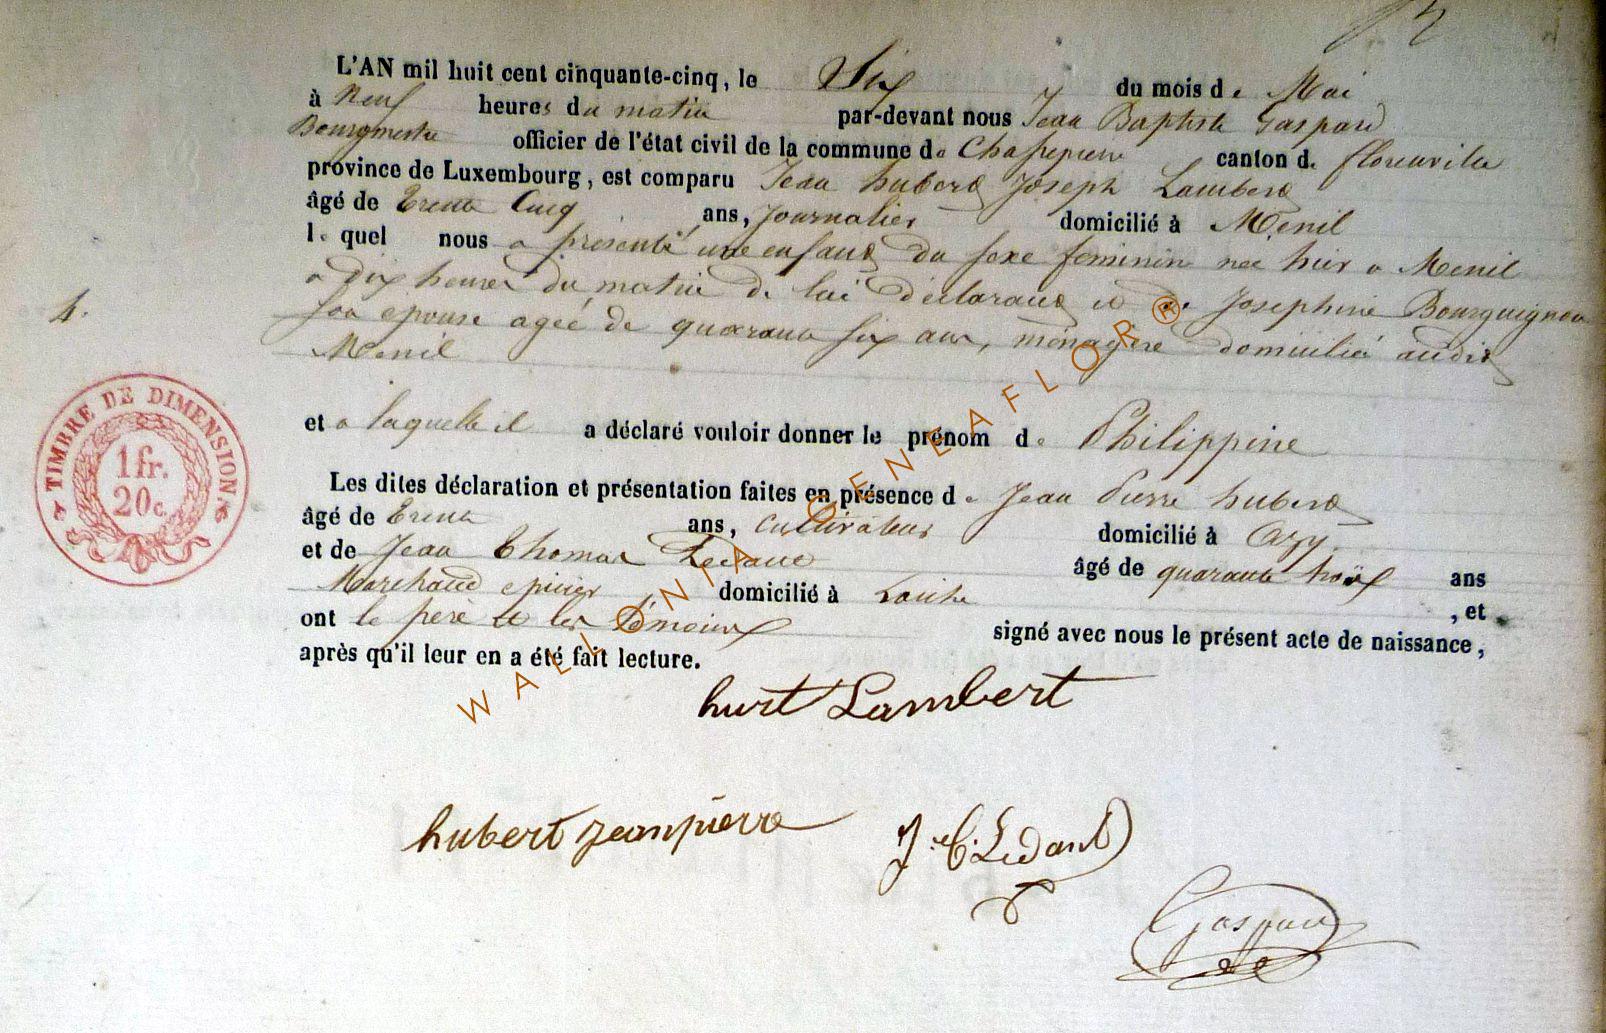 L'AN mil huit cent cinquante-cinq, le Six du mois de Mai
à Neuf heures du matin par-devant nous Jean Baptiste Gaspard
Bourgmestre officier de l'état civil de la commune de Chassepierre canton de florenville
province de Luxembourg, est comparu Jean hubert Joseph Lambert
âgé de Trente Cinq ans, Journalier domicilié à Menil
lequel nous a présenté une enfant du sexe feminin née hier a Menil
a dix heures du matin de lui déclarant et de Josephine Bourguignon
son epouse agée de quarante six ans, ménagère domiciliée audit
4.
Menil
TIMBRE DE DIMENSION.
1 fr.
20 c.
et a laquelle il a déclaré vouloir donner le prénom de Philippine
Les dites déclaration et présentation faites en présence de Jean Pierre hubert
âgé de Trente ans, cultivateur domicilié à Azy
et de Jean Thomas Ledant âgé de quarante ans
Marchand epicier domicilié à Laiche, et
ont le père et les témoins signé avec nous le présent acte de naissance,
après qu'il leur en a été fait lecture.
hurt Lambert
hubert jeanpierre
J. T. Ledant
Gaspard
WALLONIA GENEAFLOR ®